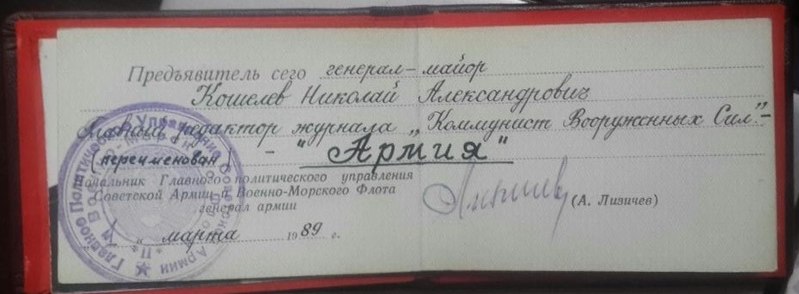 Предъявитель сего генерал-майор
Кошелев Николай Александрович
редактор журнала „Коммунист Вооруженных Сил"-
(переименован) - "Армия"
Начальник Главного политического управления
Советской Армии и Военно-Морского Флота
генерал армии
(А. Лизичев)
" марта 1989 г.